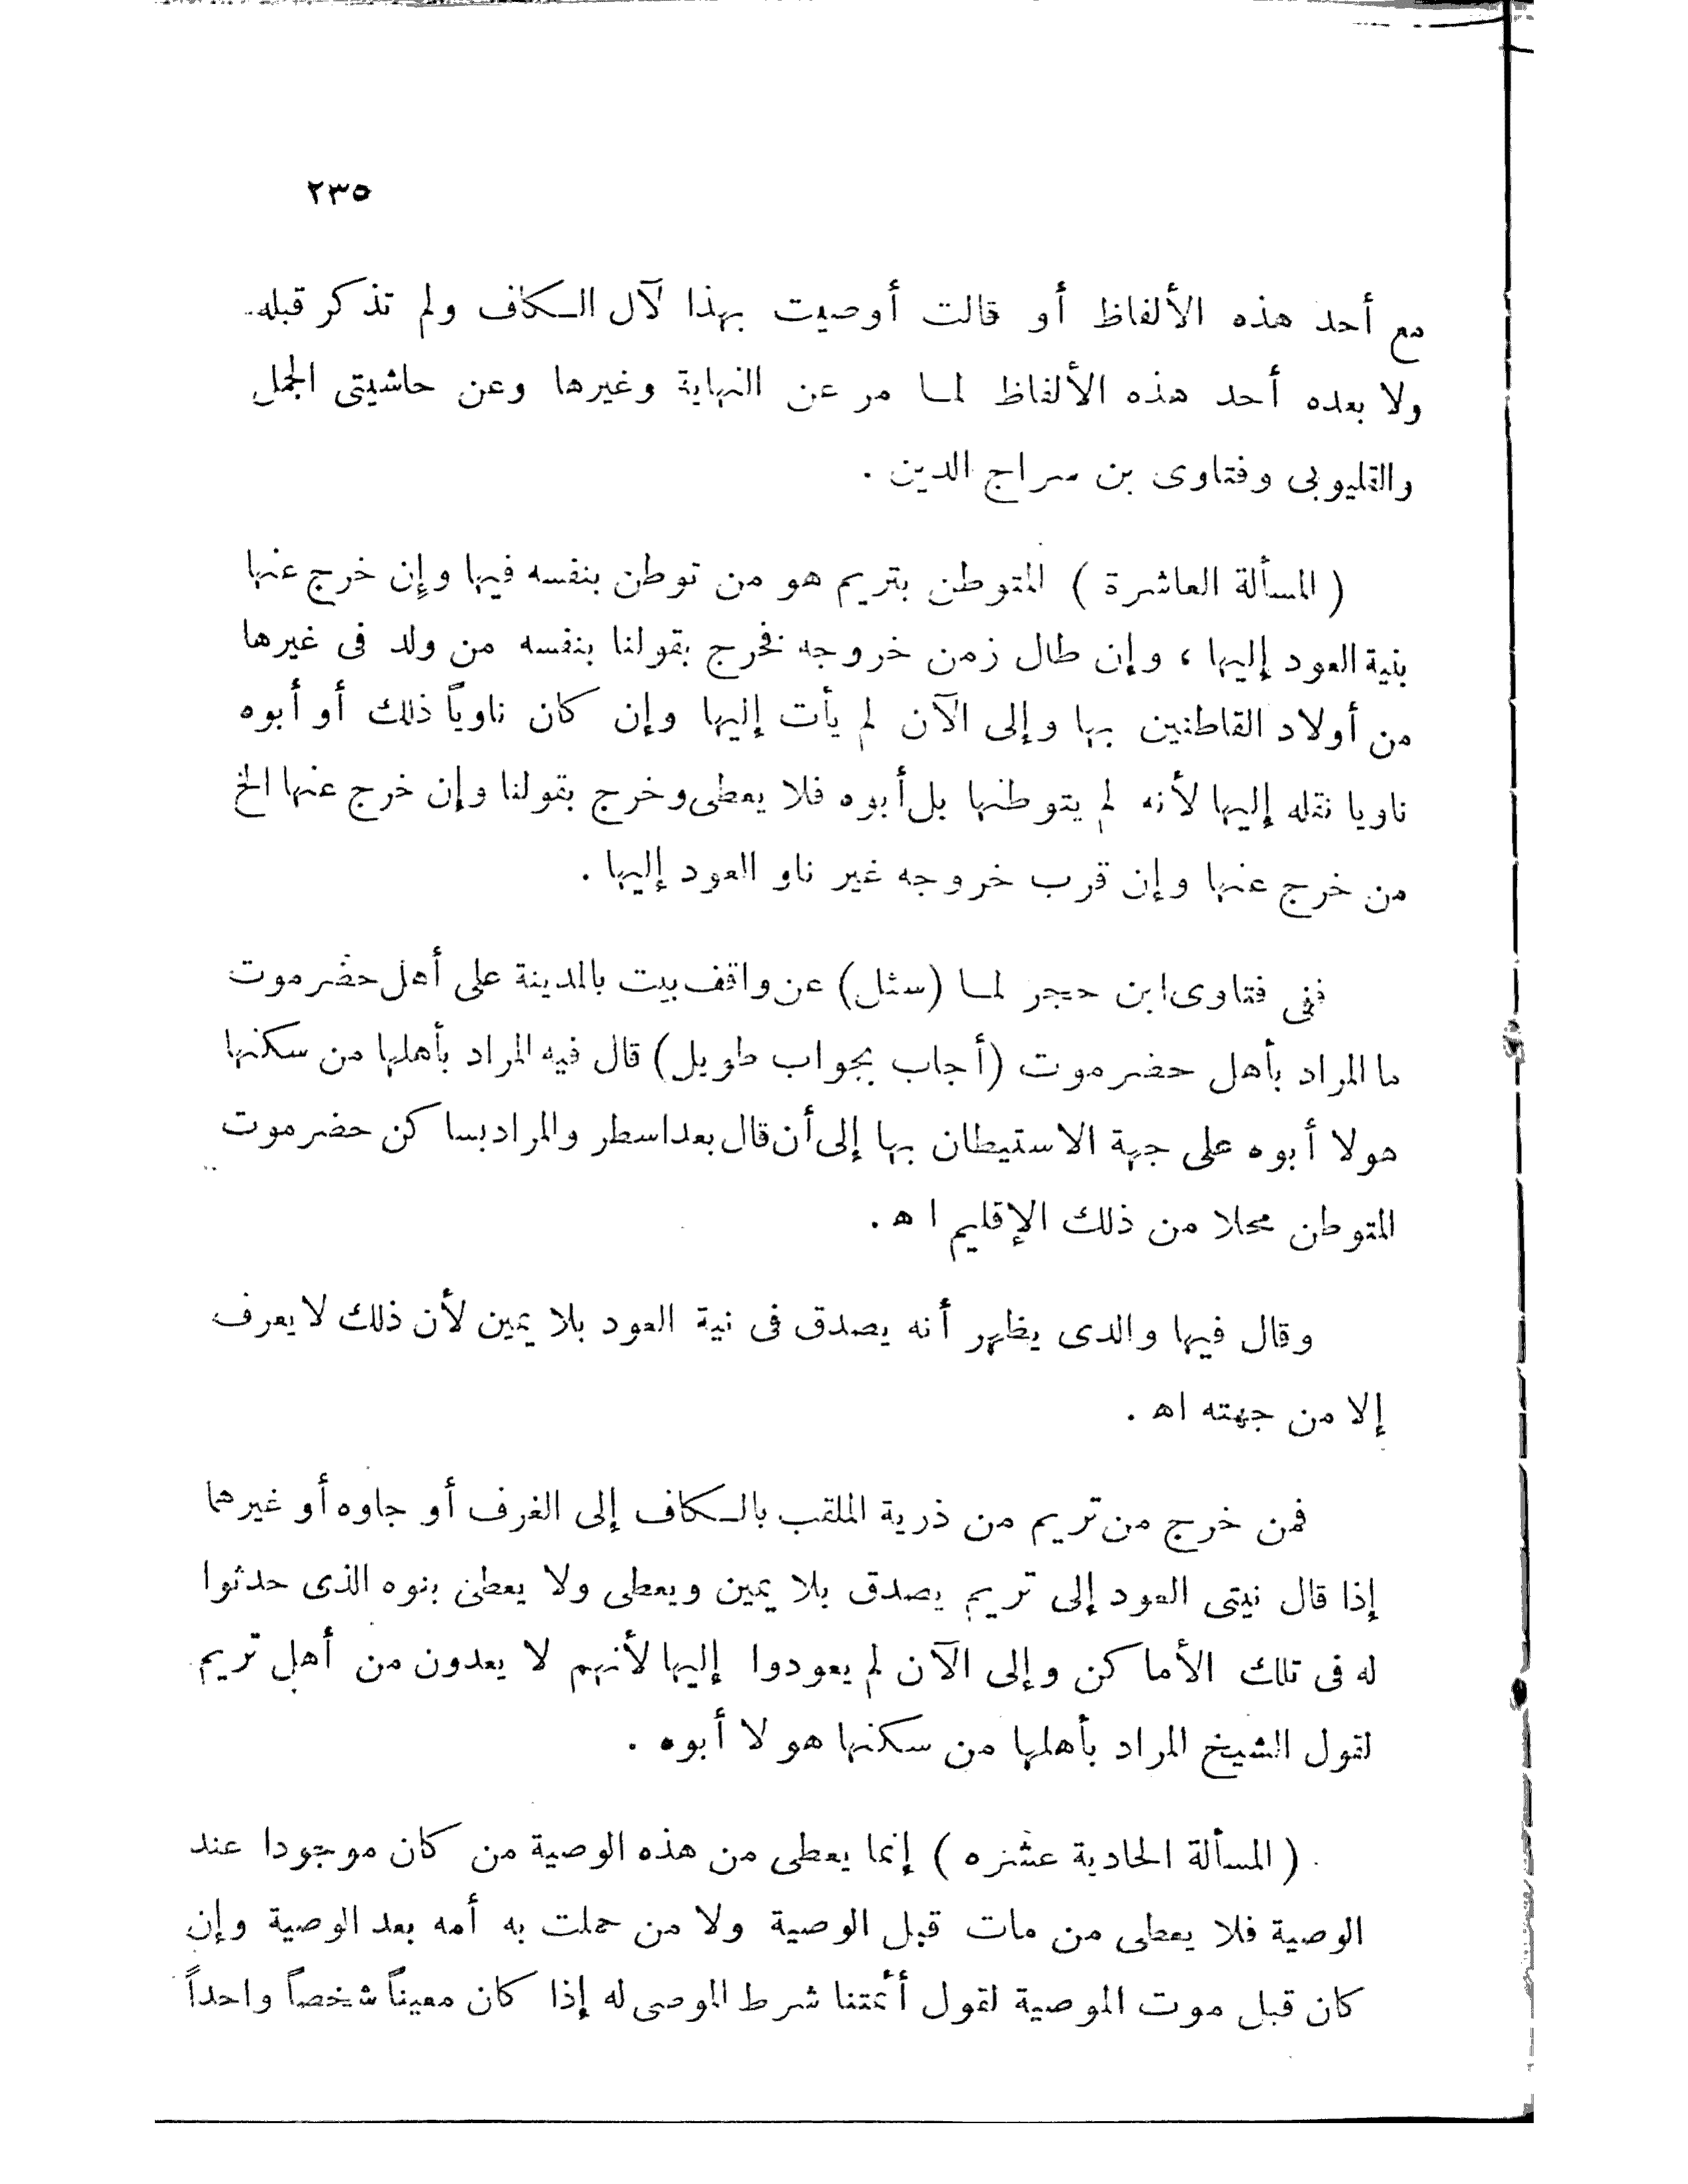 ٢٣٥
مع أحد هذه الألفاظ أو قالت أوصيت بهذا لآل السكاف ولم تذكر قبله
ولا بعده أحد هذه الألفاظ لما مر عن النهاية وغيرها وعن حاشيتى الجمل
والقليوبى وفتاوى بن سراج الدين .
( المسألة العاشرة ) المتوطن بتريم هو من توطن بنفسه فيها وإن خرج عنها
بنية العود إليها ، وإن طال زمن خروجه فخرج بقولنا بنفسه من ولد فى غيرها
من أولاد القاطنين بها وإلى الآن لم يأت إليها وإن كان ناوياً ذلك أو أبوه
ناويا نقله إليها لأنه لم يتوطنها بل أبوه فلا يعطى وخرج بقولنا وإن خرج عنها الخ
من خرج عنها وإن قرب خروجه غير ناو العود إليها .
ففى فتاوى ابن حجر لما (سئل) عن واقف بيت بالمدينة على أهل حضرموت
ما المراد بأهل حضرموت (أجاب بجواب طويل) قال فيه المراد بأهلها من سكنها
هولا أبوه على جهة الاستيطان بها إلى أن قال بعد اسطر والمراد بساكن حضرموت
المتوطن محلا من ذلك الإقليم ا ه .
وقال فيها والدى يظهر أنه يصدق فى نية العود بلا يمين لأن ذلك لا يعرف
إلا من جهته اه .
فمن خرج من تريم من ذرية الملقب بالسكاف إلى الغرف أو جاوه أو غيرهما
إذا قال نيتى العود إلى تريم يصدق بلا يمين ويعطى ولا يعطى بنوه الذى حدثوا
له فى تلك الأماكن وإلى الآن لم يعودوا إليها لأنهم لا يعدون من أهل تريم
لقول الشيخ المراد بأهلها من سكنها هو لا أبوه .
( المسألة الحادية عشره ) إنما يعطى من هذه الوصية من كان موجودا عند
الوصية فلا يعطى من مات قبل الوصية ولا من حملت به أمه بعد الوصية وإن
كان قبل موت الموصية لقول أئمتنا شرط الموصى له إذا كان معيناً شخصاً واحداً